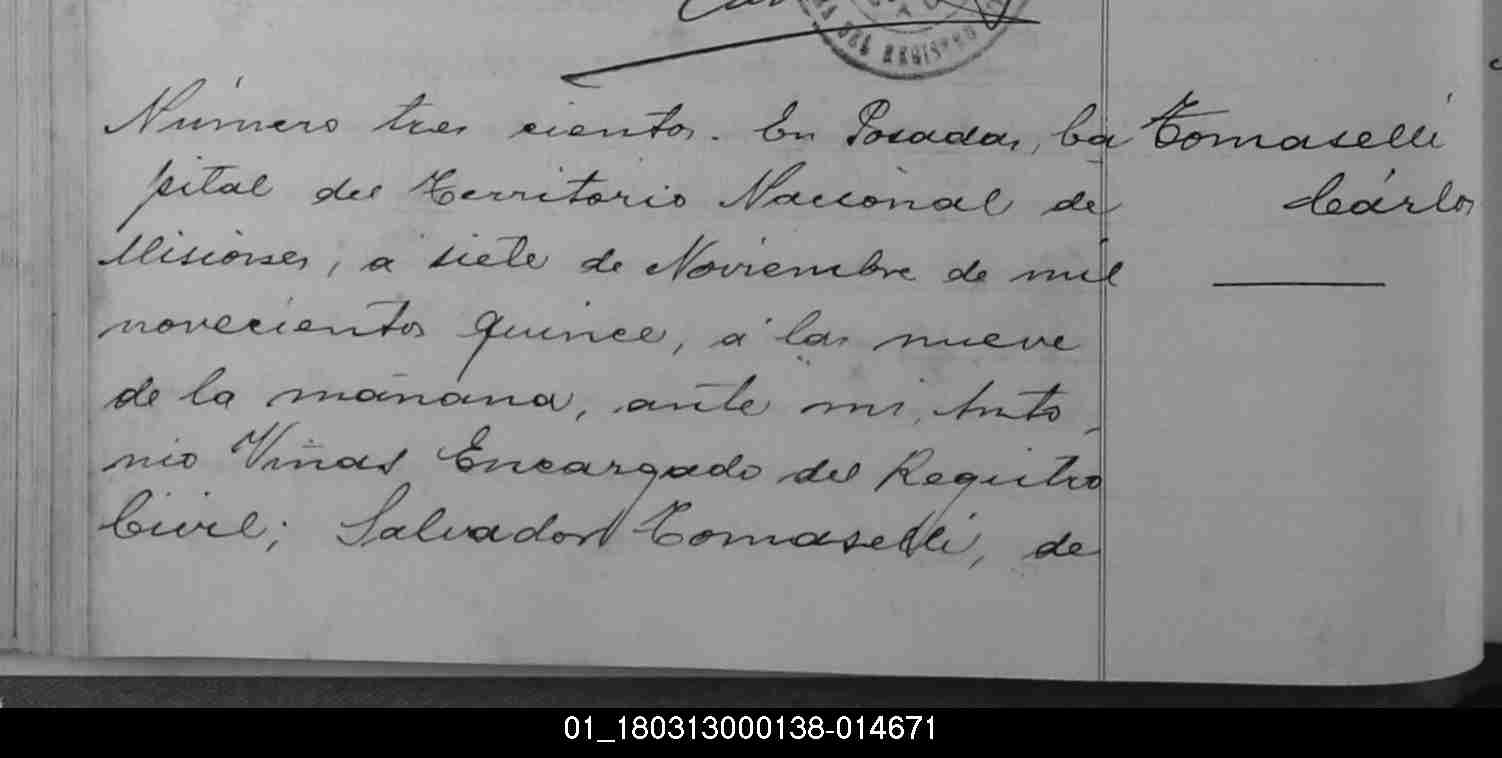 DEL REGISTRO
Número tres cientos. En Posadas, Ca
pital del Territorio Nacional de
Misiones, á siete de Noviembre de mil
novecientos quince, á las nueve
de la mañana, ante mi, Anto
nio Viñas Encargado del Registro
Civil; Salvador Tomaselli, de
Tomaselli
Cárlos
01_180313000138-014671